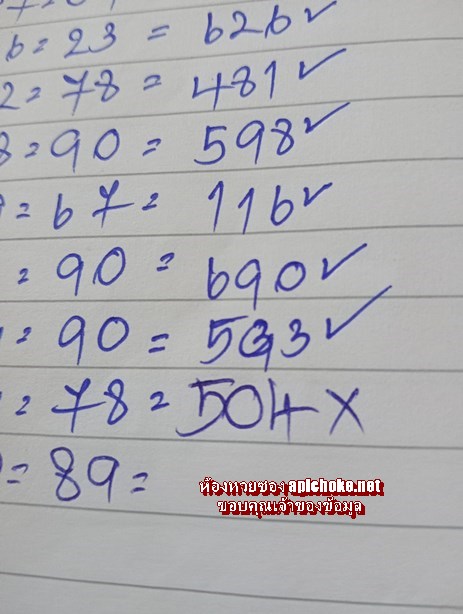 6 = 23 = 626✓
2 = 78 = 481✓
8 = 90 = 598✓
= 67 = 116✓
= 90 = 690✓
= 90 = 593✓
= 78 = 504 X
= 89 =
ห้องหวยซอง apichoke.net
ขอบคุณเจ้าของข้อมูล